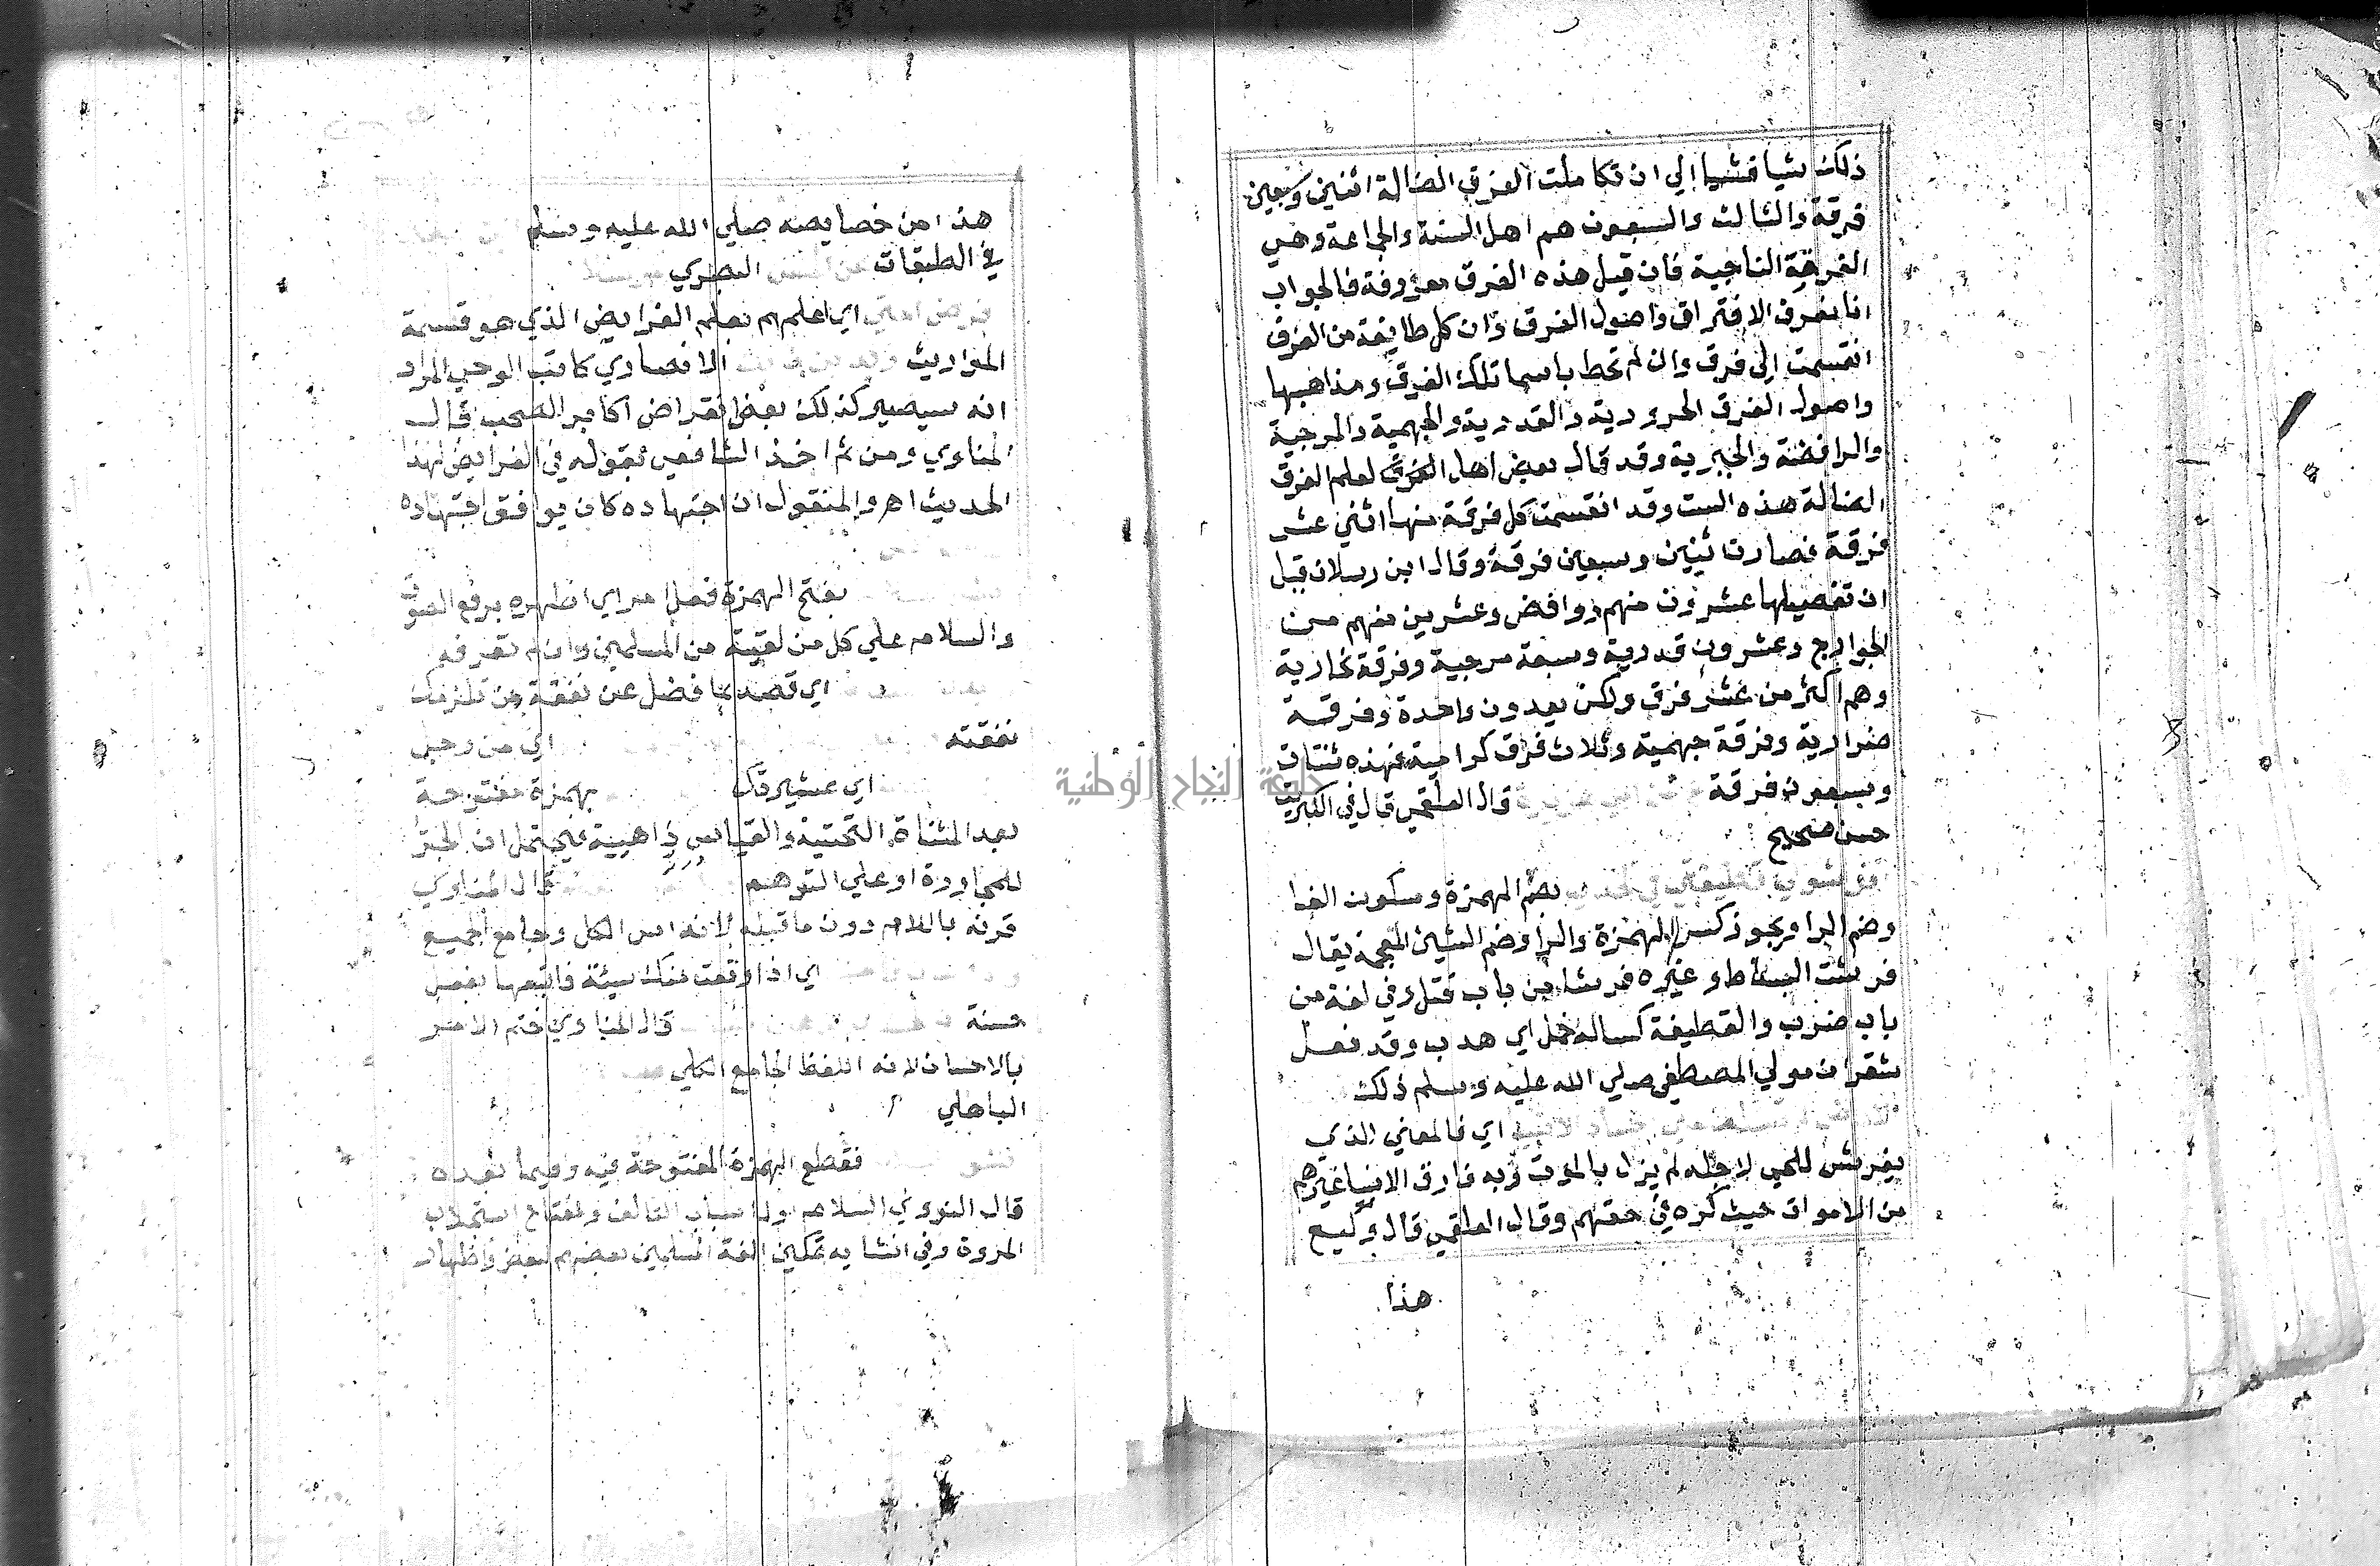 ذلك شيا فشيا الي ان تكاملت الفرق الضالة اثنين وسبعين
فرقة والثالث والسبعون هم اهل السنة والجماعة وهي
الفرقة الناجية فان قيل هذه الفرق معروفة فالجواب
انا نعرف الافتراق واصول الفرق وان كل طايفة من الفرق
انقسمت الي فرق وان لم تحط باسما تلك الفرق ومذاهبها
واصول الفرق الحرورية والقدرية والجهمية والمرجية
والرافضة والجبرية وقد قال بعض اهل العلم الفرق
الضالة هذه الست وقد انقسمت كل فرقة منها اثني عشر
فرقة فصارت ثنين وسبعين فرقة وقال ابن رسلان قيل
ان تفصيلها عشرون منهم روافض وعشرين منهم من
الخوارج وعشرون قدرية وسبعة مرجية وفرقة نجارية
وهم اكثر من عشر فرق ولكن يعدون واحدة وفرقة
ضرارية وفرقة جهمية وثلاث فرق كرامية فهذه ثنتان
وسبعون فرقة قال العلقمي قال في الكبير
حسن صحيح
بضم الهمزة وسكون الفا
وضم الرا ويجوز كسر الهمزة والرا وضم الشين المعجمة يقال
فرشت البساط وغيره فرشا من باب قتل وفي لغة من
باب ضرب والقطيفة كساله خمل اي هدب وقد فعل
شقران مولي المصطفي صلي الله عليه وسلم ذلك
اي فالمعاني الذي
يفرش للحي لاجله لم يزل بالموت وبه فارق الانبيا غيرهم
من الاموات حيث كره في حقهم وقال العلقمي قال وكيع
هذا
هذا من خصايصه صلي الله عليه وسلم
في الطبقات عن الحسن البصري
اي اعلمهم بعلم الفرايض الذي هو قسمة
المواريث الانصاري كاتب الوحي المراد
انه سيصير كذلك بعد انقراض اكابر الصحب قال
المناوي ومن ثم اخذ الشافعي بقوله في الفرايض لهذا
الحديث اهـ والمنقول ان اجتهاده كان يوافق اجتهاده
بفتح الهمزة فعل امر اي اظهره برفع الصوت
والسلام علي كل من لقيته من المسلمين وان لم تعرفه
اي تصدق بما فضل عن نفقة من تلزمك
نفقته اي من وحي
اي عشيرتك بهمزة مفتوحة
بعد المثناة التحتية والقياس ذا هيبة فيحتمل ان الجر
للمجاورة او علي التوهم قال المناوي
قرنه باللام دون ما قبله لانه اس الكل وجامع الجميع
اي اذا وقعت منك سيئة فاتبعها بفعل
حسنة قال المناوي ختم الامر
بالاحسان لانه اللفظ الجامع الكلي
الباهلي
فقطع الهمزة المفتوحة فيه وفيما بعده
قال النووي السلام اول اسباب التالف ومفتاح استجلاب
المروة وفي افشايه تمكين الفة المسلمين بعضهم لبعض واظهار
جامعة النجاح الوطنية